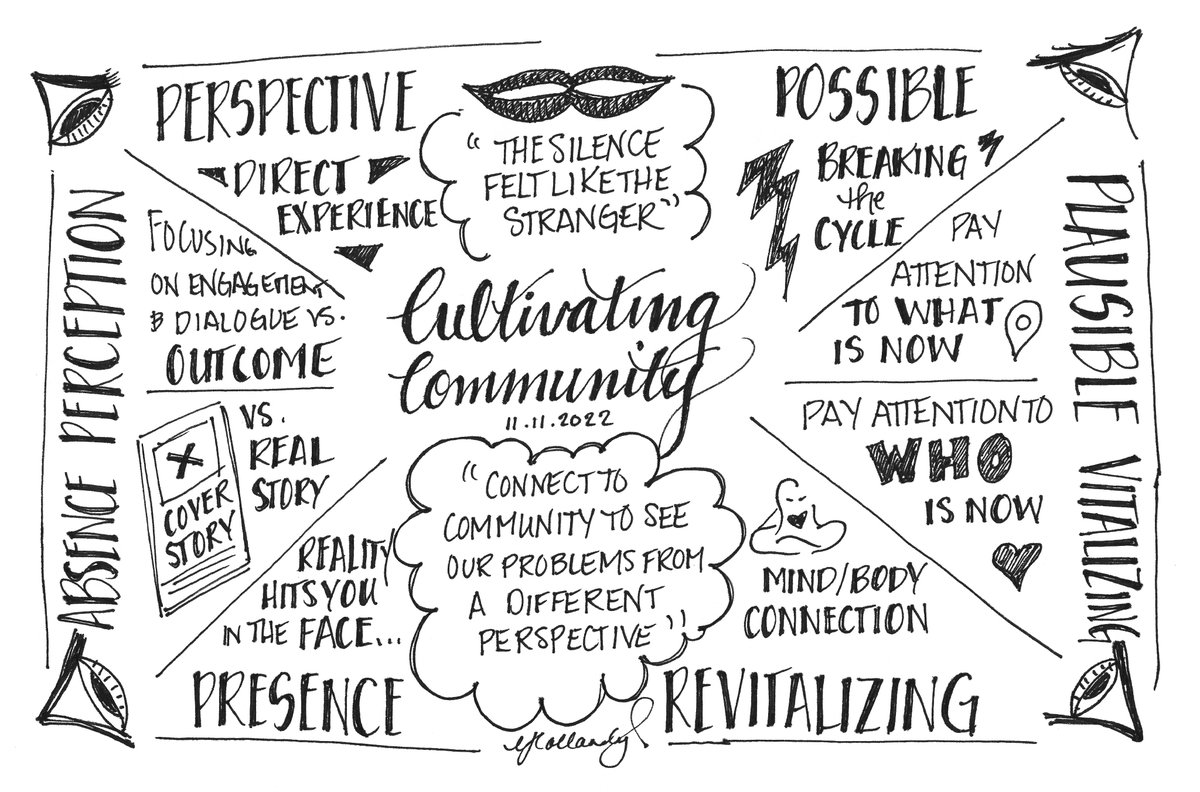 PERSPECTIVE
DIRECT
EXPERIENCE
"THE SILENCE
FELT LIKE THE
STRANGER"
POSSIBLE
BREAKING
the
CYCLE
ABSENCE PERCEPTION
FOCUSING
ON ENGAGEMENT
& DIALOGUE VS.
OUTCOME
COVER
STORY
VS.
REAL
STORY
Cultivating
Community
11.11.2022
PAY
ATTENTION
TO WHAT
IS NOW
PAY ATTENTION TO
WHO
IS NOW
PLAUSIBLE VITALIZING
REALITY
HITS YOU
IN THE FACE...
PRESENCE
"CONNECT TO
COMMUNITY TO SEE
OUR PROBLEMS FROM
A DIFFERENT
PERSPECTIVE"
MIND/BODY
CONNECTION
REVITALIZING